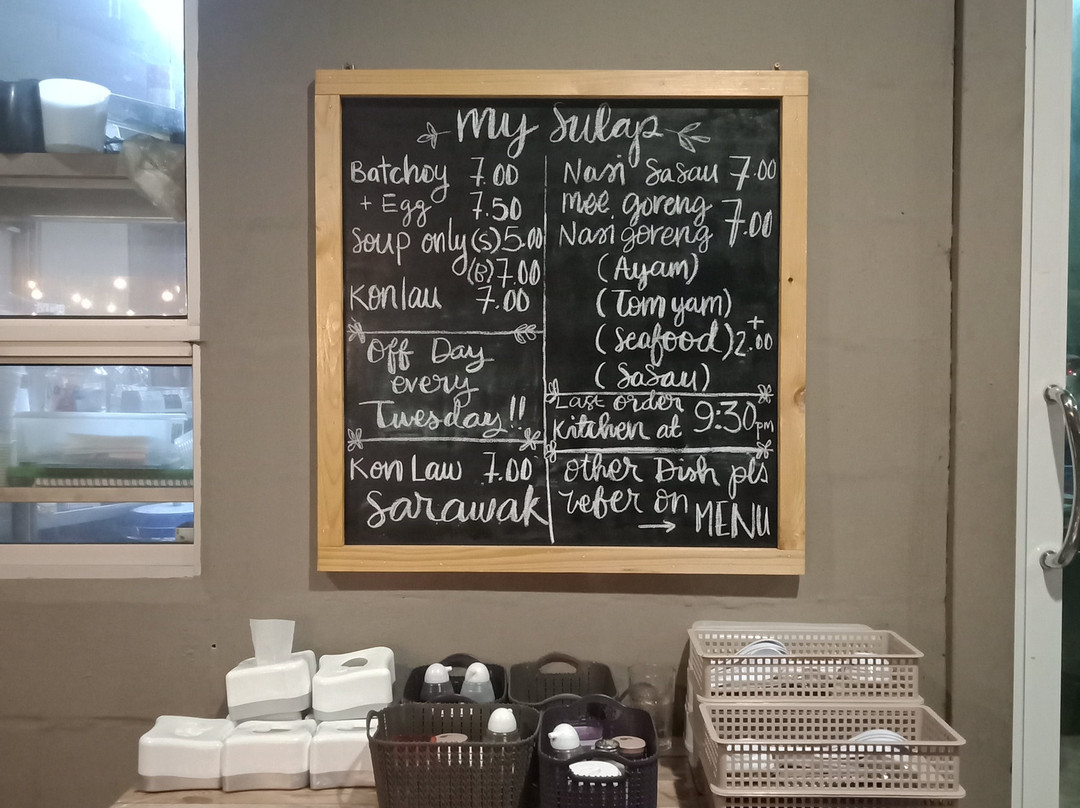 My Sulap
Batchoy 7.00
+ Egg 7.50
Soup only (S) 5.00
(B) 7.00
Konlau 7.00
Off Day
every
Tuesday!!
Kon Law 7.00
Sarawak
Nasi Sasau 7.00
Mee goreng
Nasi goreng 7.00
(Ayam)
(Tom yam)
(Seafood) + 2.00
(Sasau)
Last order
Kitchen at 9:30pm
other Dish pls
refer on
→ MENU